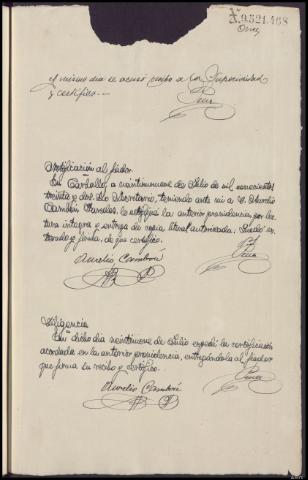 3.9.521.468
El mismo dia se acusó recibo a la Superioridad
y certifico.—
Notificación al fiador.
En Carballo, a veintinueve de Julio de mil novecientos
treinta y dos. Yo Secretario, teniendo ante mi a D. Aurelio
Cambón Varelas, le notifiqué la anterior providencia por lec-
tura íntegra y entrega de copia literal autorizada. Quedó en-
terado y firma, de que certifico.
Aurelio Cambón
Diligencia
En dicho dia veintinueve de Julio expedí la certificación
acordada en la anterior providencia, entregándola al fiador
que firma su recibo y certifico.
Aurelio Cambón